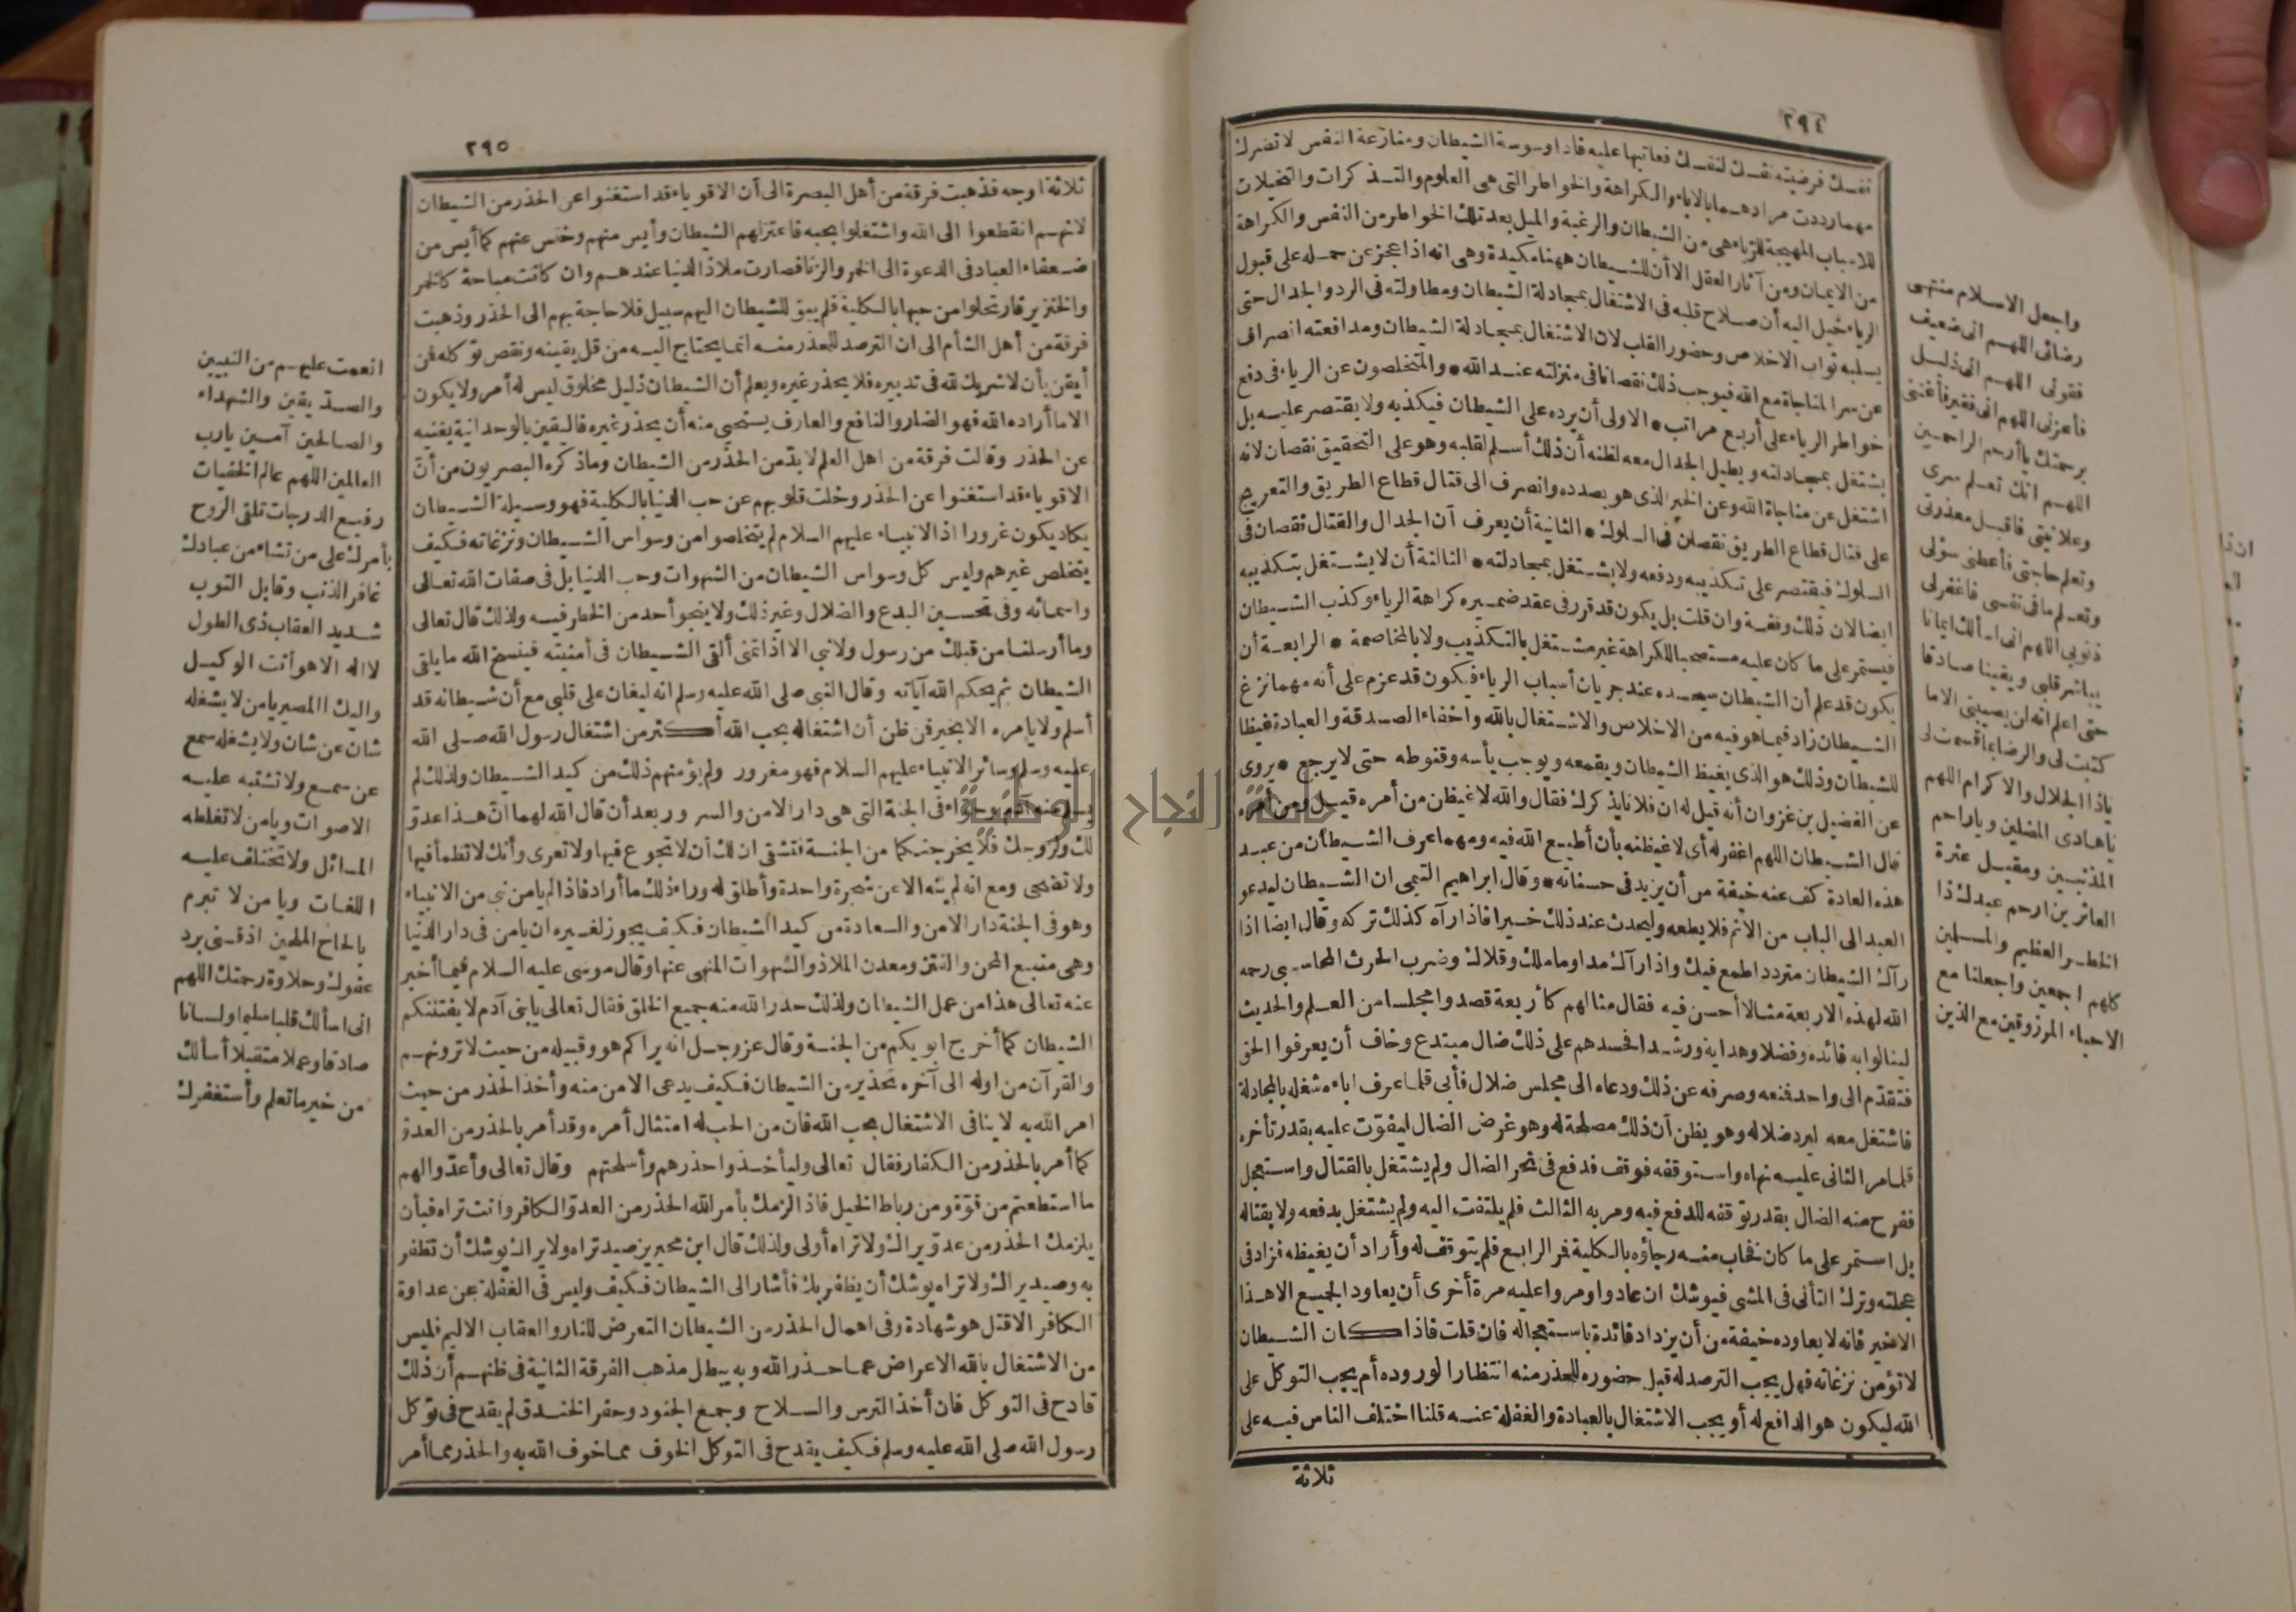 ٢٩٤
نفسك فرضيته نفسك لنفسك فعاتبها عليه فاذا وسوسة الشيطان ومنازعة النفس لا تضرك
مهما رددت مرادهما بالاباء والكراهة والخواطر التى هى العلوم والتذكرات والتخيلات
للاسباب المهيجة للرياء هى من الشيطان والرغبة والميل بعد تلك الخواطر من النفس والكراهة
من الايمان ومن آثار العقل الا أن للشيطان ههنا مكيدة وهى انه اذا عجز عن حمله على قبول
الرياء خيل اليه أن صلاح قلبه فى الاشتغال بمجادلة الشيطان ومطاولته فى الرد والجدال حتى
يسلبه ثواب الاخلاص وحضور القلب لان الاشتغال بمجادلة الشيطان ومدافعته انصراف
عن سر المناجاة مع الله فيوجب ذلك نقصانا فى منزلته عند الله * والمتخلصون عن الرياء فى دفع
خواطر الرياء على أربع مراتب * الاولى أن يرده على الشيطان فيكذبه ولا يقتصر عليه بل
يشتغل بمجادلته ويطيل الجدال معه لظنه أن ذلك أسلم لقلبه وهو على التحقيق نقصان لانه
اشتغل عن مناجاة الله وعن الخير الذى هو بصدده وانصرف الى قتال قطاع الطريق والتعريج
على قتال قطاع الطريق نقصان فى السلوك * الثانية أن يعرف أن الجدال والقتال نقصان فى
السلوك فيقتصر على تكذيبه ودفعه ولا يشتغل بمجادلته * الثالثة أن لا يشتغل بتكذيبه
ايضا لان ذلك وقفة وان قلت بل يكون قد قرر فى عقد ضميره كراهة الرياء وكذب الشيطان
فيستمر على ما كان عليه مستصحبا للكراهة غير مشتغل بالتكذيب ولا بالمخاصمة * الرابعة أن
يكون قد علم أن الشيطان سيحسده عند جريان أسباب الرياء فيكون قد عزم على أنه مهما نزغ
الشيطان زاد فيما هو فيه من الاخلاص والاشتغال بالله واخفاء الصدقة والعبادة غيظا
للشيطان وذلك هو الذى يغيظ الشيطان ويقمعه ويوجب يأسه وقنوطه حتى لا يرجع * يروى
عن الفضيل بن غزوان أنه قيل له ان فلانا يذكرك فقال والله لاغيظن من أمره قيل ومن أمره
قال الشيطان اللهم اغفر له أى لاغيظنه بأن أطيع الله فيه ومهما عرف الشيطان من عبد
هذه العادة كف عنه خيفة من أن يزيد فى حسناته * وقال ابراهيم التيمى ان الشيطان ليدعو
العبد الى الباب من الاثم فلا يطعه وليحدث عند ذلك خيرا فاذا رآه كذلك تركه وقال ايضا اذا
رآك الشيطان مترددا طمع فيك واذا رآك مداوما ملك وقلاك وضرب الحرث المحاسبى رحمه
الله لهذه الاربعة مثالا أحسن فيه فقال مثالهم كأربعة قصدوا مجلسا من العلم والحديث
لينالوا به فائدة وفضلا وهداية ورشدا فحسدهم على ذلك ضال مبتدع وخاف أن يعرفوا الحق
فتقدم الى واحد فمنعه وصرفه عن ذلك ودعاه الى مجلس ضلال فأبى فلما عرف اباءه شغله بالمجادلة
فاشتغل معه ليرد ضلاله وهو يظن أن ذلك مصلحة له وهو غرض الضال ليفوّت عليه بقدر تأخره
فلما مر الثانى عليه نهاه واستوقفه فوقف فدفع فى نحر الضال ولم يشتغل بالقتال واستعجل
ففرح منه الضال بقدر توقفه للدفع فيه ومر به الثالث فلم يلتفت اليه ولم يشتغل بدفعه ولا بقتاله
بل استمر على ما كان فخاب منه رجاؤه بالكلية فمر الرابع فلم يتوقف له وأراد أن يغيظه فزاد فى
عجلته وترك التأنى فى المشى فيوشك ان عادوا ومروا عليه مرة أخرى أن يعاود الجميع الا هذا
الاخير فانه لا يعاوده خيفة من أن يزداد فائدة باستعجاله فان قلت فاذا كان الشيطان
لا تؤمن نزغاته فهل يجب الترصد له قبل حضوره للحذر منه انتظارا لوروده أم يجب التوكل على
الله ليكون هو الدافع له أو يجب الاشتغال بالعبادة والغفلة عنه قلنا اختلف الناس فيه على
ثلاثة
واجعل الاسلام منتهى
رضائى اللهم انى ضعيف
فقونى اللهم انى ذليل
فأعزنى اللهم انى فقير فأغننى
برحمتك ياأرحم الراحمين
اللهم انك تعلم سرى
وعلانيتى فاقبل معذرتى
وتعلم حاجتى فأعطنى سؤلى
وتعلم ما فى نفسى فاغفر لى
ذنوبى اللهم انى اسألك ايمانا
يباشر قلبى ويقينا صادقا
حتى اعلم انه لن يصيبنى الا ما
كتبت لى والرضا بما قسمت لى
ياذا الجلال والاكرام اللهم
ياهادى المضلين وياراحم
المذنبين ومقيل عثرة
العاثرين ارحم عبدك ذا
الخطر العظيم والمسلمين
كلهم اجمعين واجعلنا مع
الاحياء المرزوقين مع الذين
٢٩٥
ثلاثة اوجه فذهبت فرقة من أهل البصرة الى أن الاقوياء قد استغنوا عن الحذر من الشيطان
لانهم انقطعوا الى الله واشتغلوا بحبه فاعتزلهم الشيطان وأيس منهم وخنس عنهم كما أيس من
ضعفاء العباد فى الدعوة الى الخمر والزنا فصارت ملاذ الدنيا عندهم وان كانت مباحة كالخمر
والخنزير فارتحلوا من حبها بالكلية فلم يبق للشيطان اليهم سبيل فلا حاجة بهم الى الحذر وذهبت
فرقة من أهل الشأم الى ان الترصد للحذر منه انما يحتاج اليه من قل يقينه ونقص توكله فمن
أيقن بأن لا شريك لله فى تدبيره فلا يحذر غيره ويعلم أن الشيطان ذليل مخلوق ليس له أمر ولا يكون
الا ما أراده الله فهو الضار والنافع والعارف يستحيى منه أن يحذر غيره فاليقين بالوحدانية يغنيه
عن الحذر وقالت فرقة من اهل العلم لا بدّ من الحذر من الشيطان وما ذكره البصريون من أنّ
الاقوياء قد استغنوا عن الحذر وخلت قلوبهم عن حب الدنيا بالكلية فهو وسيلة الشيطان
يكاد يكون غرورا اذ الانبياء عليهم السلام لم يتخلصوا من وسواس الشيطان ونزغاته فكيف
يتخلص غيرهم وليس كل وسواس الشيطان من الشهوات وحب الدنيا بل فى صفات الله تعالى
واسمائه وفى تحسين البدع والضلال وغير ذلك ولا ينجو أحد من الخطر فيه ولذلك قال تعالى
وما أرسلنا من قبلك من رسول ولا نبى الا اذا تمنى ألقى الشيطان فى أمنيته فينسخ الله ما يلقى
الشيطان ثم يحكم الله آياته وقال النبى صلى الله عليه وسلم انه ليغان على قلبى مع أن شيطانه قد
أسلم ولا يامره الا بخير فمن ظن أن اشتغاله بحب الله أكثر من اشتغال رسول الله صلى الله
عليه وسلم وسائر الانبياء عليهم السلام فهو مغرور ولم يؤمنهم ذلك من كيد الشيطان ولذلك لم
يسلم منه آدم وحواء فى الجنة التى هى دار الامن والسرور بعد أن قال الله لهما انّ هذا عدوّ
لك ولزوجك فلا يخرجنكما من الجنة فتشقى ان لك أن لا تجوع فيها ولا تعرى وأنك لا تظمأ فيها
ولا تضحى ومع انه لم ينه الا عن شجرة واحدة وأطلق له وراء ذلك ما أراد فاذا لم يامن نبى من الانبياء
وهو فى الجنة دار الامن والسعادة من كيد الشيطان فكيف يجوز لغيره ان يامن فى دار الدنيا
وهى منبع المحن والفتن ومعدن الملاذ والشهوات المنهى عنها وقال موسى عليه السلام فيما أخبر
عنه تعالى هذا من عمل الشيطان ولذلك حذر الله منه جميع الخلق فقال تعالى يابنى آدم لا يفتننكم
الشيطان كما أخرج ابويكم من الجنة وقال عز وجل انه يراكم هو وقبيله من حيث لا ترونهم
والقرآن من اوله الى آخره تحذير من الشيطان فكيف يدعى الامن منه وأخذ الحذر من حيث
امر الله به لا ينافى الاشتغال بحب الله فان من الحب له امتثال أمره وقد أمر بالحذر من العدوّ
كما أمر بالحذر من الكفار فقال تعالى وليأخذوا حذرهم وأسلحتهم وقال تعالى وأعدّوا لهم
ما استطعتم من قوّة ومن رباط الخيل فاذا لزمك بأمر الله الحذر من العدوّ الكافر وانت تراه فبأن
يلزمك الحذر من عدوّ يراك ولا تراه أولى ولذلك قال ابن محيريز صيد تراه ولا يراك يوشك أن تظفر
به وصيد يراك ولا تراه يوشك أن يظفر بك فأشار الى الشيطان فكيف وليس فى الغفلة عن عداوة
الكافر الا قتل هو شهادة وفى اهمال الحذر من الشيطان التعرض للنار والعقاب الاليم فليس
من الاشتغال بالله الاعراض عما حذر الله وبه يبطل مذهب الفرقة الثانية فى ظنهم أن ذلك
قادح فى التوكل فان أخذ الترس والسلاح وجمع الجنود وحفر الخندق لم يقدح فى توكل
رسول الله صلى الله عليه وسلم فكيف يقدح فى التوكل الخوف مما خوف الله به والحذر مما أمر
انعمت عليهم من النبيين
والصدّيقين والشهداء
والصالحين آمين يارب
العالمين اللهم عالم الخفيات
رفيع الدرجات تلقى الروح
بأمرك على من تشاء من عبادك
غافر الذنب وقابل التوب
شديد العقاب ذى الطول
لا اله الا هو أنت الوكيل
واليك المصير يامن لا يشغله
شان عن شان ولا يشغله سمع
عن سمع ولا تشتبه عليه
الاصوات ويامن لا تغلطه
المسائل ولا تختلف عليه
اللغات ويا من لا تبرم
بالحاح الملحين اذقنى برد
عفوك وحلاوة رحمتك اللهم
انى اسألك قلبا سليما ولسانا
صادقا وعملا متقبلا أسألك
من خير ما تعلم وأستغفرك
جامعة النجاح الوطنية